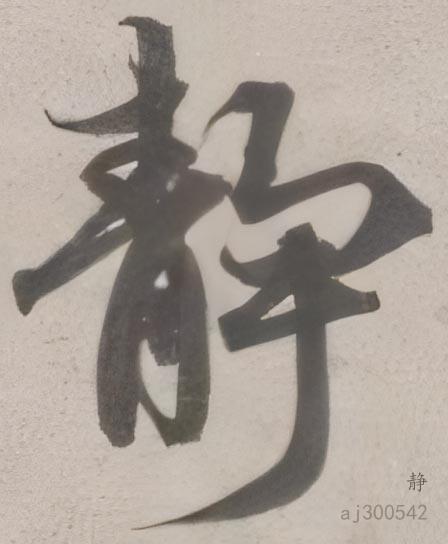 静
静
aj300542